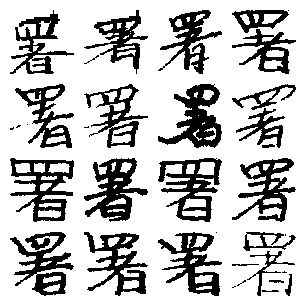 署署署署
署署署署
署署署署
署署署署